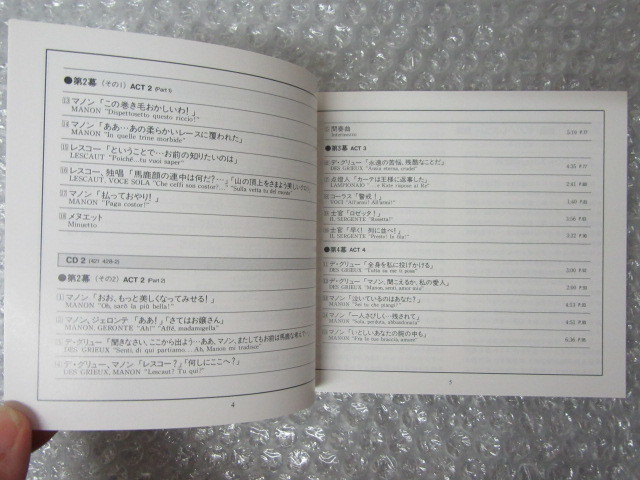 ●第2幕 (その1) ACT 2 (Part 1)
13 マノン「この巻き毛おかしいわ!」
MANON "Dispettosetto questo riccio!"
14 マノン「ああ…あの柔らかいレースに覆われた」
MANON "In quelle trine morbide"
15 レスコー「ということで…お前の知りたいのは」
LESCAUT "Poiché...tu vuoi saper"
16 レスコー、独唱「馬鹿顔の連中は何だ?…」「山の頂上をさまよう美しい
LESCAUT, VOCE SOLA "Che ceffi son costor?..." "Sulla vetta tu del monte"
17 マノン「払っておやり!」
MANON "Paga costor!"
18 メヌエット
Minuetto
CD 2 (421 426-2)
●第2幕 (その2) ACT 2 (Part 2)
1 マノン「おお、もっと美しくなってみせる!」
MANON "Oh, sarò la più bella!"
2 マノン、ジェロンテ「ああ!」「さてはお嬢さん」
MANON, GERONTE "Ah!" "Affè, madamigella"
3 デ・グリュー「聞きなさい、ここから出よう…ああ、マノン、またしてもお前は馬鹿な
DES GRIEUX "Senti, di qui partiamo... Ah, Manon mi tradisce"
4 デ・グリュー、マノン「レスコー?」「何しにここへ?」
DES GRIEUX, MANON "Lescaut? Tu qui?"
4
5 間奏曲
Intermezzo
●第3幕 ACT 3
デ・グリュー「永遠の苦悩、残酷なことだ」
DES GRIEUX "Ansia eterna, crudel"
点燈人「カーテは王様に返事した」
LAMPIONAIO "...e Kate rispose al Re"
コーラス「警戒!」
VOCI "All'armi! All'armi!"
士官「ロゼッタ!」
IL SERGENTE "Rosetta!"
士官「早く!列に並べ!」
IL SERGENTE "Presto! In fila!"
●第4幕 ACT 4
デ・グリュー「全身を私に投げかける」
DES GRIEUX "Tutta su me ti posa"
デ・グリュー「マノン、聞こえるか、私の愛人」
DES GRIEUX "Manon, senti, amor mio"
マノン「泣いているのはあなた?」
MANON "Sei tu che piangi?"
マノン「一人さびしく…残されて」
MANON "Sola, perduta, abbandonata"
マノン「いとしいあなたの腕の中も」
MANON "Fra le tue braccia, amore!"
5